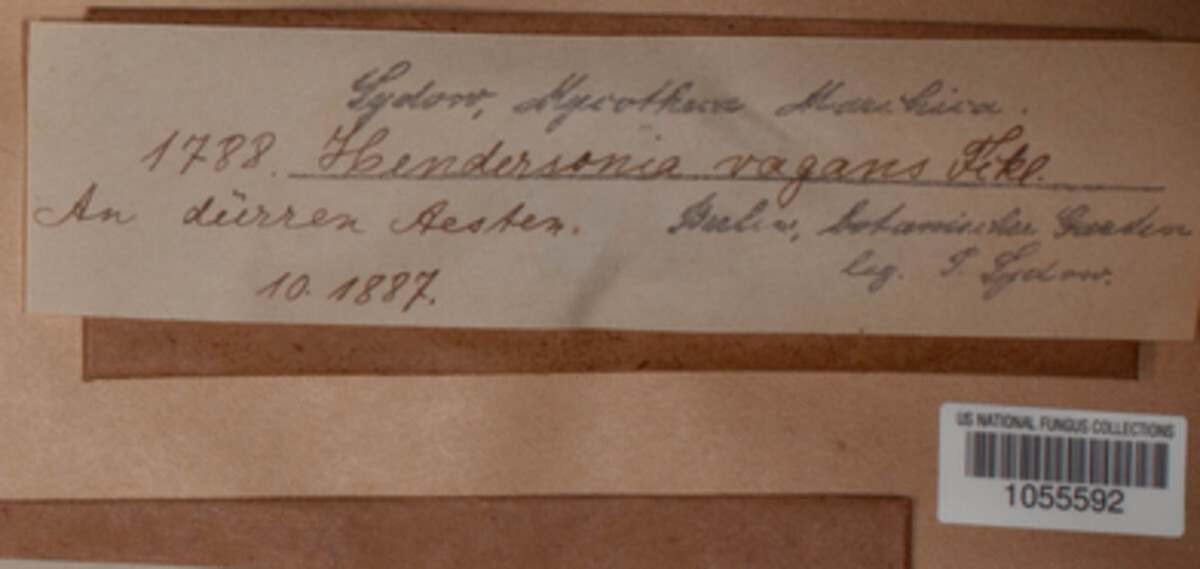 Sydow, Mycotheca Marchica.
1788. Hendersonia vagans Fckl.
An dürren Aesten. Berlin, botanischer Garten
10. 1887. leg. P. Sydow.
US NATIONAL FUNGUS COLLECTIONS
1055592